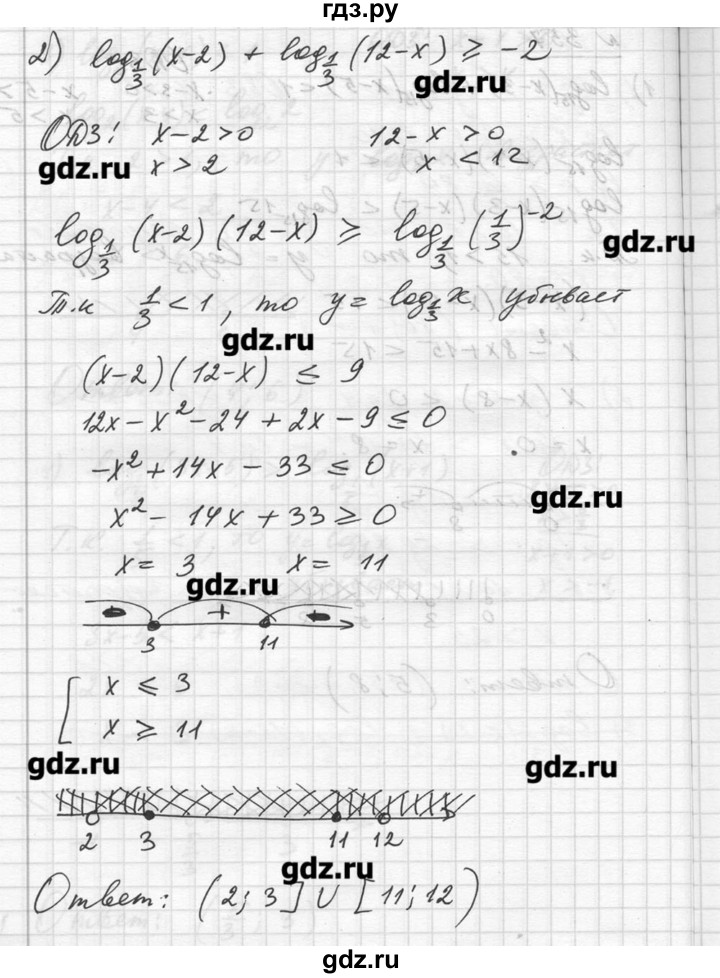 гдз.ру
2) log_{1/3} (x-2) + log_{1/3} (12-x) ≥ -2
gdz.ru
ОДЗ: x-2>0 12-x>0
gdz.ru x>2 x<12
log_{1/3} (x-2)(12-x) ≥ log_{1/3} (1/3)^{-2}
gdz.ru
Т.к 1/3 < 1, то y = log_{1/3} x убывает
gdz.ru
(x-2)(12-x) ≤ 9
12x - x² - 24 + 2x - 9 ≤ 0
-x² + 14x - 33 ≤ 0
gdz.ru
x² - 14x + 33 ≥ 0
x = 3 x = 11
gdz.ru
- + -
3 11
[ x ≤ 3
x ≥ 11
gdz.ru gdz.ru
2 3 11 12
gdz.ru
Ответ: (2; 3] ∪ [11; 12)
gdz.ru